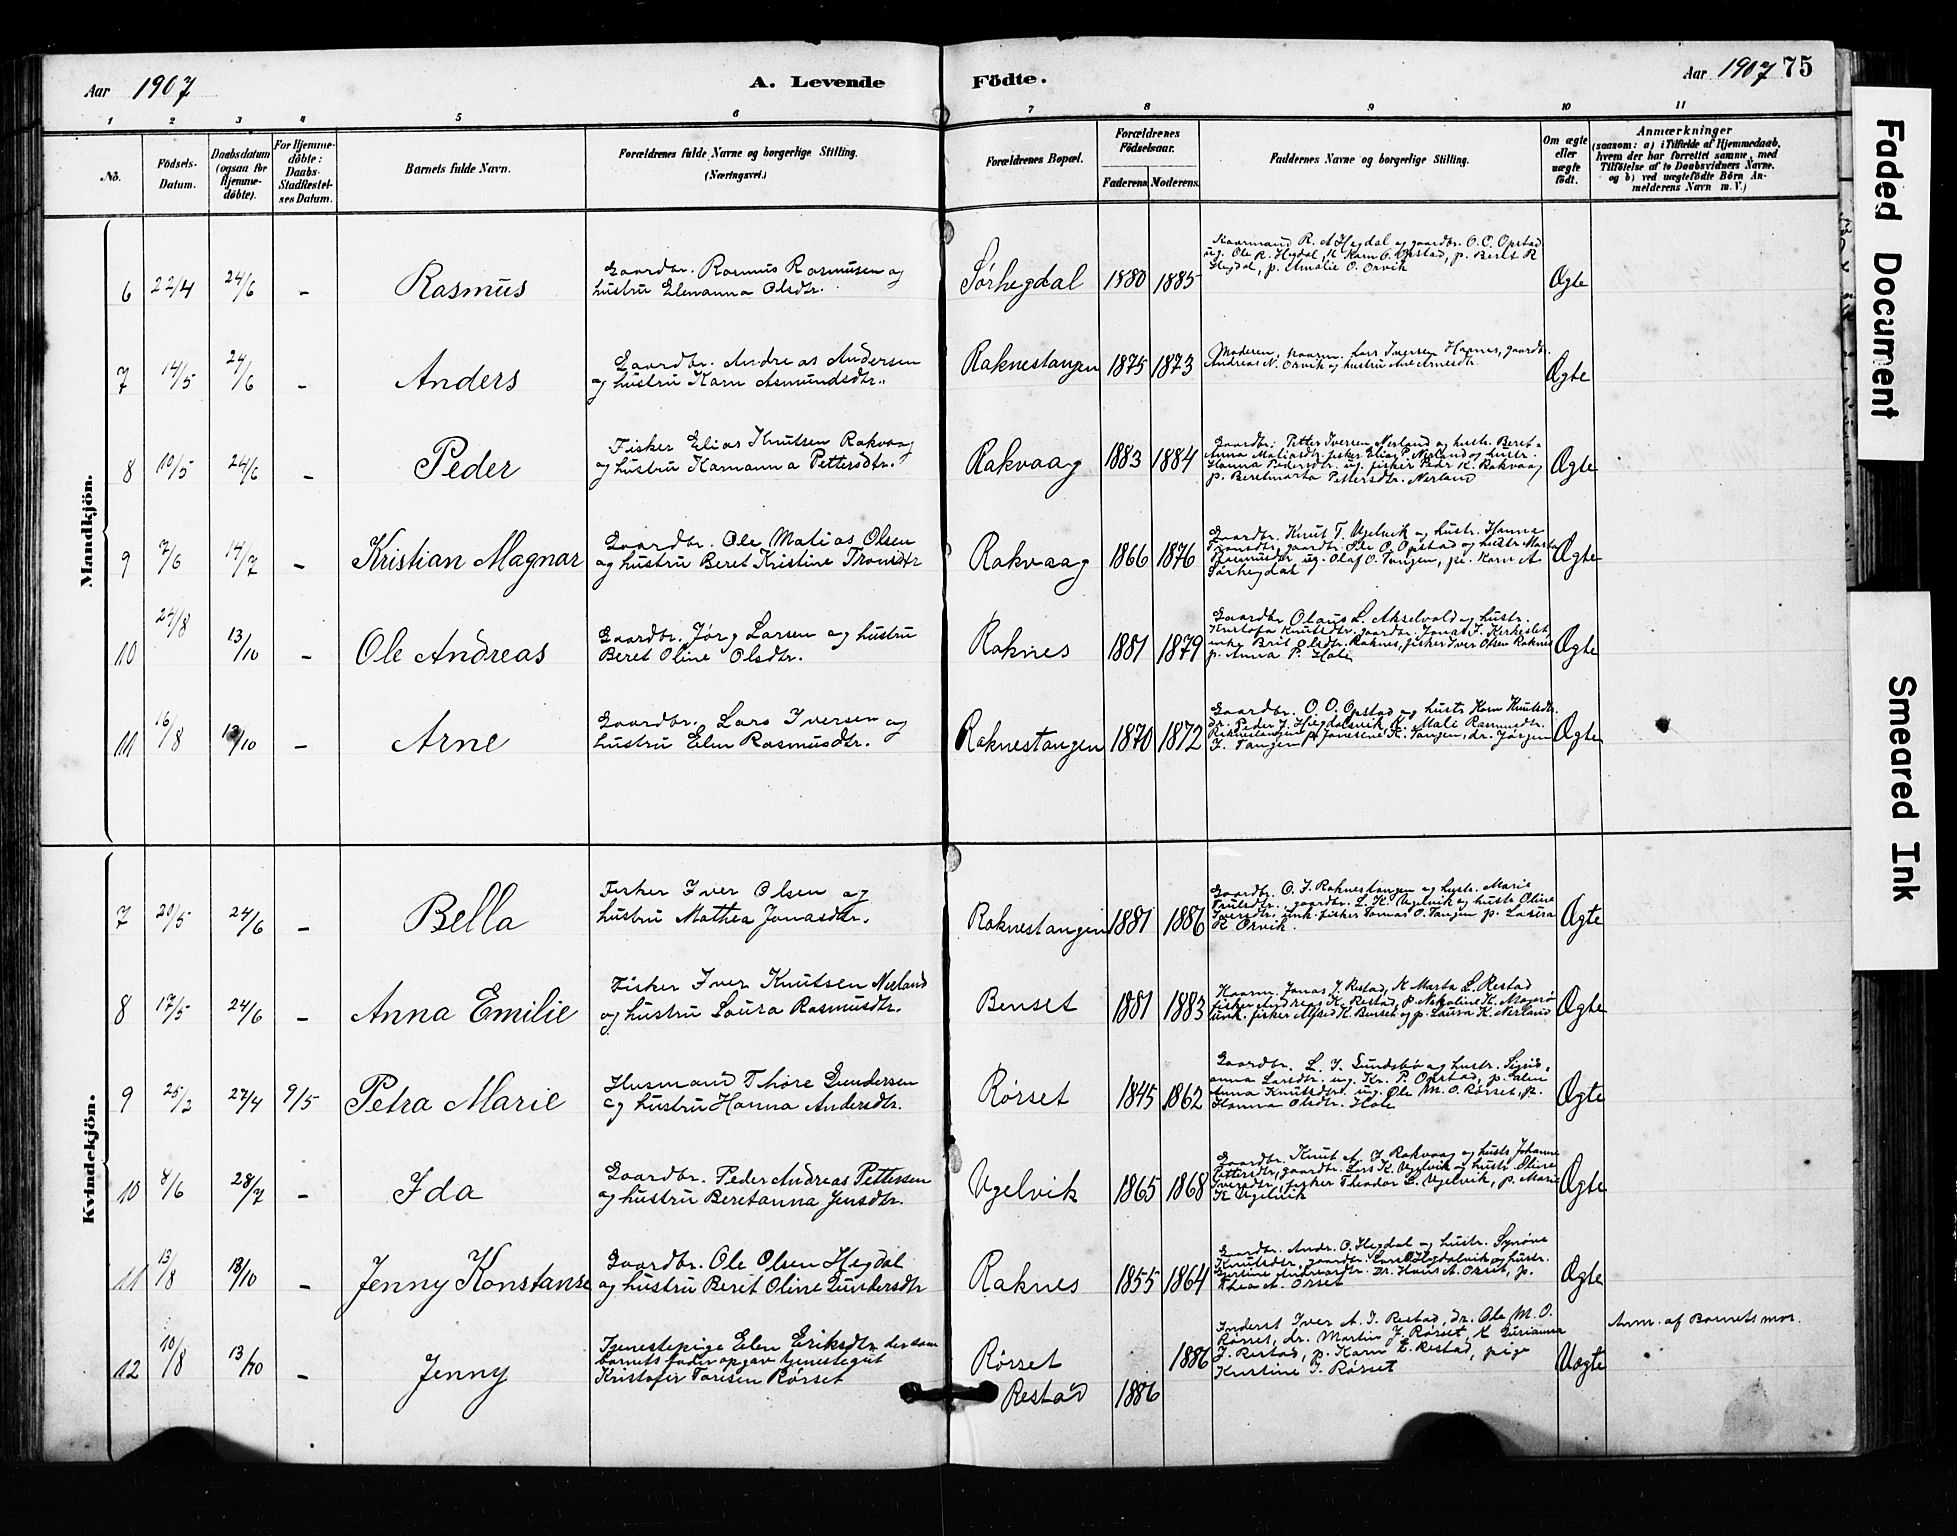 Aar 1907
A. Levende
Födte.
Aar 1907 75
1 2 3 4 5 6 7 8 9 10 11
No.
Födsels-Datum.
Daabsdatum (ogsaa for Hjemme-döbte).
For Hjemme-döbte: Daabs-Stadfæstel-ses Datum.
Barnets fulde Navn.
Forældrenes fulde Navne og borgerlige Stilling. (Næringsvei.)
Forældrenes Bopæl.
Forældrenes Födselsaar.
Faderens. Moderens.
Faddernes Navne og borgerlige Stilling.
Om ægte eller uægte födt.
Anmærkninger
(saasom: a) i Tilfælde af Hjemmedaab, hvem der har forrettet samme, med Tilföielse af to Daabsvidners Navne, og b) ved uægtefödte Börn An-melderens Navn m. V.)
Mandkjön.
6 22/4 24/6 - Rasmus
Gaardbr. Rasmus Rasmusen og
hustru Elenanna Olsdtr.
Sørhegdal 1880 1885
Kaarmand R. A Hegdal og gaardbr. O. O. Opstad
ug. Ole R. Hegdal, K Karn O. Opstad, p. Berit R
Hegdal, p. Amalie O. Orvik
Ægte
7 14/5 24/6 - Anders
Gaardbr. Andreas Andersen
og hustru Karn Asmundsdtr.
Raknestangen 1875 1873
Moderen, kaarm. Lars Iversen Hagnes, gaardbr.
Andreas N. Orvik og hustru Ane Arnesdtr
Ægte
8 10/5 24/6 - Peder
Fisker Elias Knutsen Rakvaag
og hustru Karnanna Pettersdtr.
Rakvaag 1883 1884
Gaardbr. Petter Iversen Nerland og hustr. Beret-
Anna Matiasdtr. fisker Elias P. Nerland og hustr.
Hanna Pedersdtr. ug. fisker Peder K. Rakvaag
p. Beretmarta Pettersdtr. Nerland
Ægte
9 7/6 14/7 - Kristian Magnar
Gaardbr. Ole Matias Olsen
og hustru Beret Kristine Tronsdtr
Rakvaag 1866 1876
Gaardbr. Knut T. Ugelvik og hustr. Hanna
Tronsdtr, gaardbr. Ole O. Opstad og hustr. Marta
Rasmusdtr, ug. Olaf O. Tangen, pi. Karn A
Sørhegdal
Ægte
10 24/8 13/10 - Ole Andreas
Gaardbr. Jørg Larsen og hustru
Beret Oline Olsdtr.
Raknes 1881 1879
Gaardbr Olaus L. Akselvold og hustr.
Kristofa Knutsdtr. gaardbr. Jonas J.
enke Brit Olsdtr. Raknes, fisker Iver Olsen Raknes
p. Anna P. Hole
Ægte
11 16/8 13/10 - Arne
Gaardbr. Lars Iversen og
hustru Elen Rasmusdtr.
Raknestangen 1870 1872
Gaardbr. O. O. Opstad og hustr Karn Knutsdtr.
dr. Peder J. Hegdalsvik K. Mali Rasmusdtr.
Raknestangen p. Jonsine K. Tangen, dr. Jørgen
I. Tangen
Ægte
Kvindekjön.
7 20/5 24/6 - Bella
Fisker Iver Olsen og
hustru Mathea Jonasdtr.
Raknestangen 1881 1886
Gaardbr. O. I. Raknestangen og hustr. Marie
Knutsdtr., gaardbr. L. K. Ugelvik og hustr Oline
Iversdtr. unk. fisker Tomas O. Tangen p. Lovisa
K Orvik.
Ægte
8 17/5 24/6 - Anna Emilie
Fisker Iver Knutsen Nerland
og hustru Laura Rasmusdtr.
Benset 1881 1883
Kaarm. Jonas J. Restad, K Marta L. Restad
fisker Andreas K. Restad, p. Nikoline K. Magerø
unk. fisker Alfred K. Benset og p. Laura K. Nerland
Ægte
9 25/2 27/4 9/5 Petra Marie
Husmand Thore Gundersen
og hustru Hanna Andersdtr.
Rørset 1845 1862
Gaardbr. L. I. Sundsbø og hustr. Sigrid-
anna Larsdtr. ug. Kr. P. Opstad, p. Elen
Anna Knutsdtr. ug. Ole M. O. Rørset, p.
Hanna Olsdtr. Hole
Ægte
10 8/6 28/7 - Ida
Gaardbr. Peder Andreas Pettersen
og hustru Beretanna Jensdtr.
Ugelvik 1865 1868
Gaardbr. Knut A. I. Rakvaag og hustr Johanne
Pettersdtr, gaardbr. Lars K. Ugelvik og hustr Oline
Iversdtr, fisker Theodor L. Ugelvik, p. Marie
K Ugelvik
Ægte
11 13/8 13/10 - Jenny Konstanse
Gaardbr. Ole Olsen Hegdal
og hustru Beret Oline Gundersdtr
Raknes 1855 1864
Gaardbr. Andr. O. Hegdal og hustr. Synøve
Knutsdtr, gaardbr. Lars Hegdalsvik og hustr.
Bertine Andreasdtr. Dr. Hans A. Orset, p.
Thea A. Orset
Ægte
12 10/8 13/10 - Jenny
Tjenestepige Elen Eriksdtr. der som
barnets fader opgav tjenestegut
Kristofer Toresen Rørset
Rørset 1886
Restad 1886
Inderst Iver A. I. Restad, dr. Ole M. O.
Rørset, dr. Martin J. Rørset, K Gurianna
J. Restad, p. Karn E. Restad, pige
Kristine I. Rørset
Uægte
Anm. af Barnets mor.
Faded Document
Smeared Ink